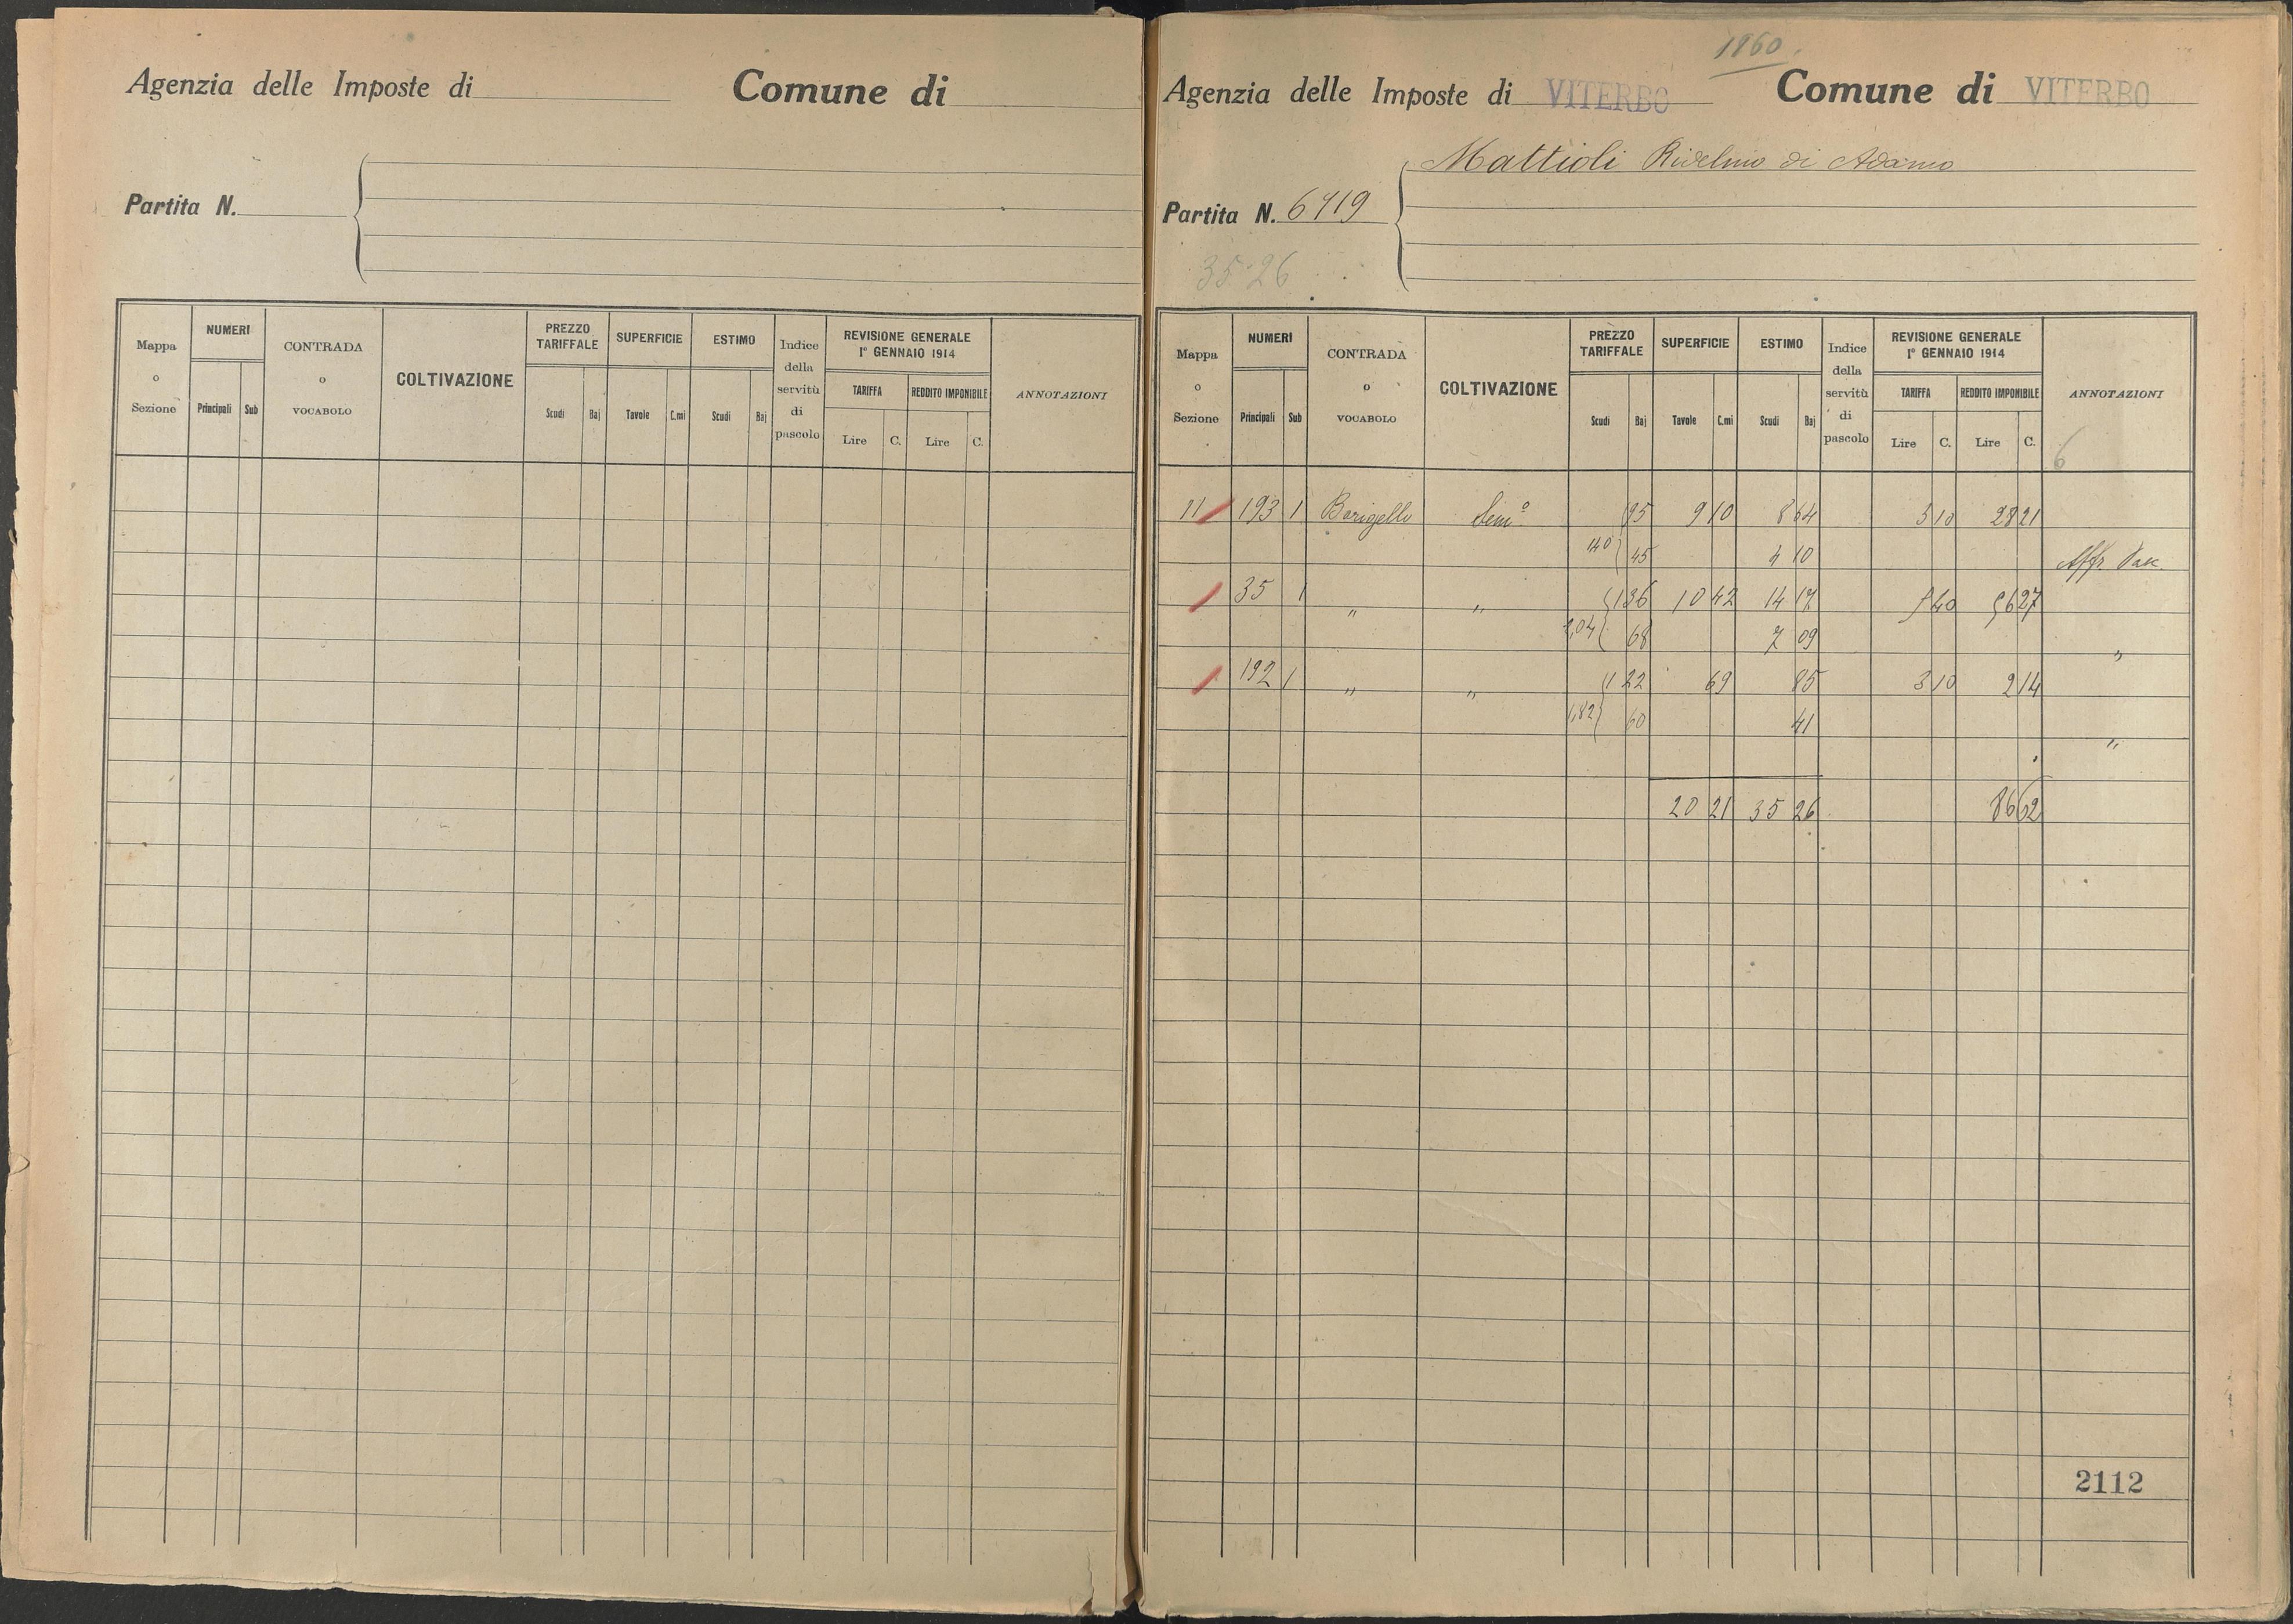 Agenzia delle Imposte di
Comune di
Partita N.
Mappa o Sezione
NUMERI
Principali Sub
CONTRADA o VOCABOLO
COLTIVAZIONE
PREZZO TARIFFALE
Scudi Baj
SUPERFICIE
Tavole C.mi
ESTIMO
Scudi Baj
Indice della servitù di pascolo
REVISIONE GENERALE
1° GENNAIO 1914
TARIFFA
Lire C.
REDDITO IMPONIBILE
Lire C.
ANNOTAZIONI
1860.
Agenzia delle Imposte di VITERBO
Comune di VITERBO
Mattioli Rivelino di Adamo
Partita N. 6419
35.26
Mappa o Sezione
NUMERI
Principali Sub
CONTRADA o VOCABOLO
COLTIVAZIONE
PREZZO TARIFFALE
Scudi Baj
SUPERFICIE
Tavole C.mi
ESTIMO
Scudi Baj
Indice della servitù di pascolo
REVISIONE GENERALE
1° GENNAIO 1914
TARIFFA
Lire C.
REDDITO IMPONIBILE
Lire C.
ANNOTAZIONI
6
11 193 1 Barigello Sem.° 95 9 10 8 64 3 10 28 21
140 45 4 10 Affr. Pas.
35 1 " " 1 36 10 42 14 17 5 40 56 27
2,04 68 7 09 "
192 1 " " 1 22 69 85 3 10 2 14
1,82 60 41 "
20 21 35 26 86 62
2112